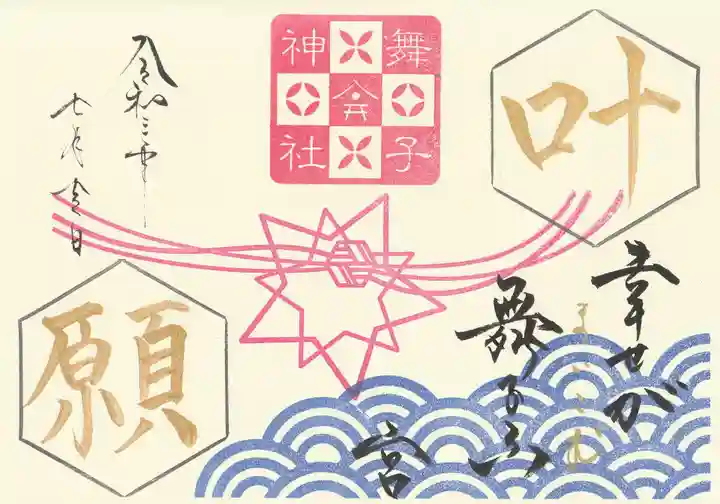 叶
幸せが
まいこむ
舞子
宮
舞子
神社
願
令和三年
七月吉日